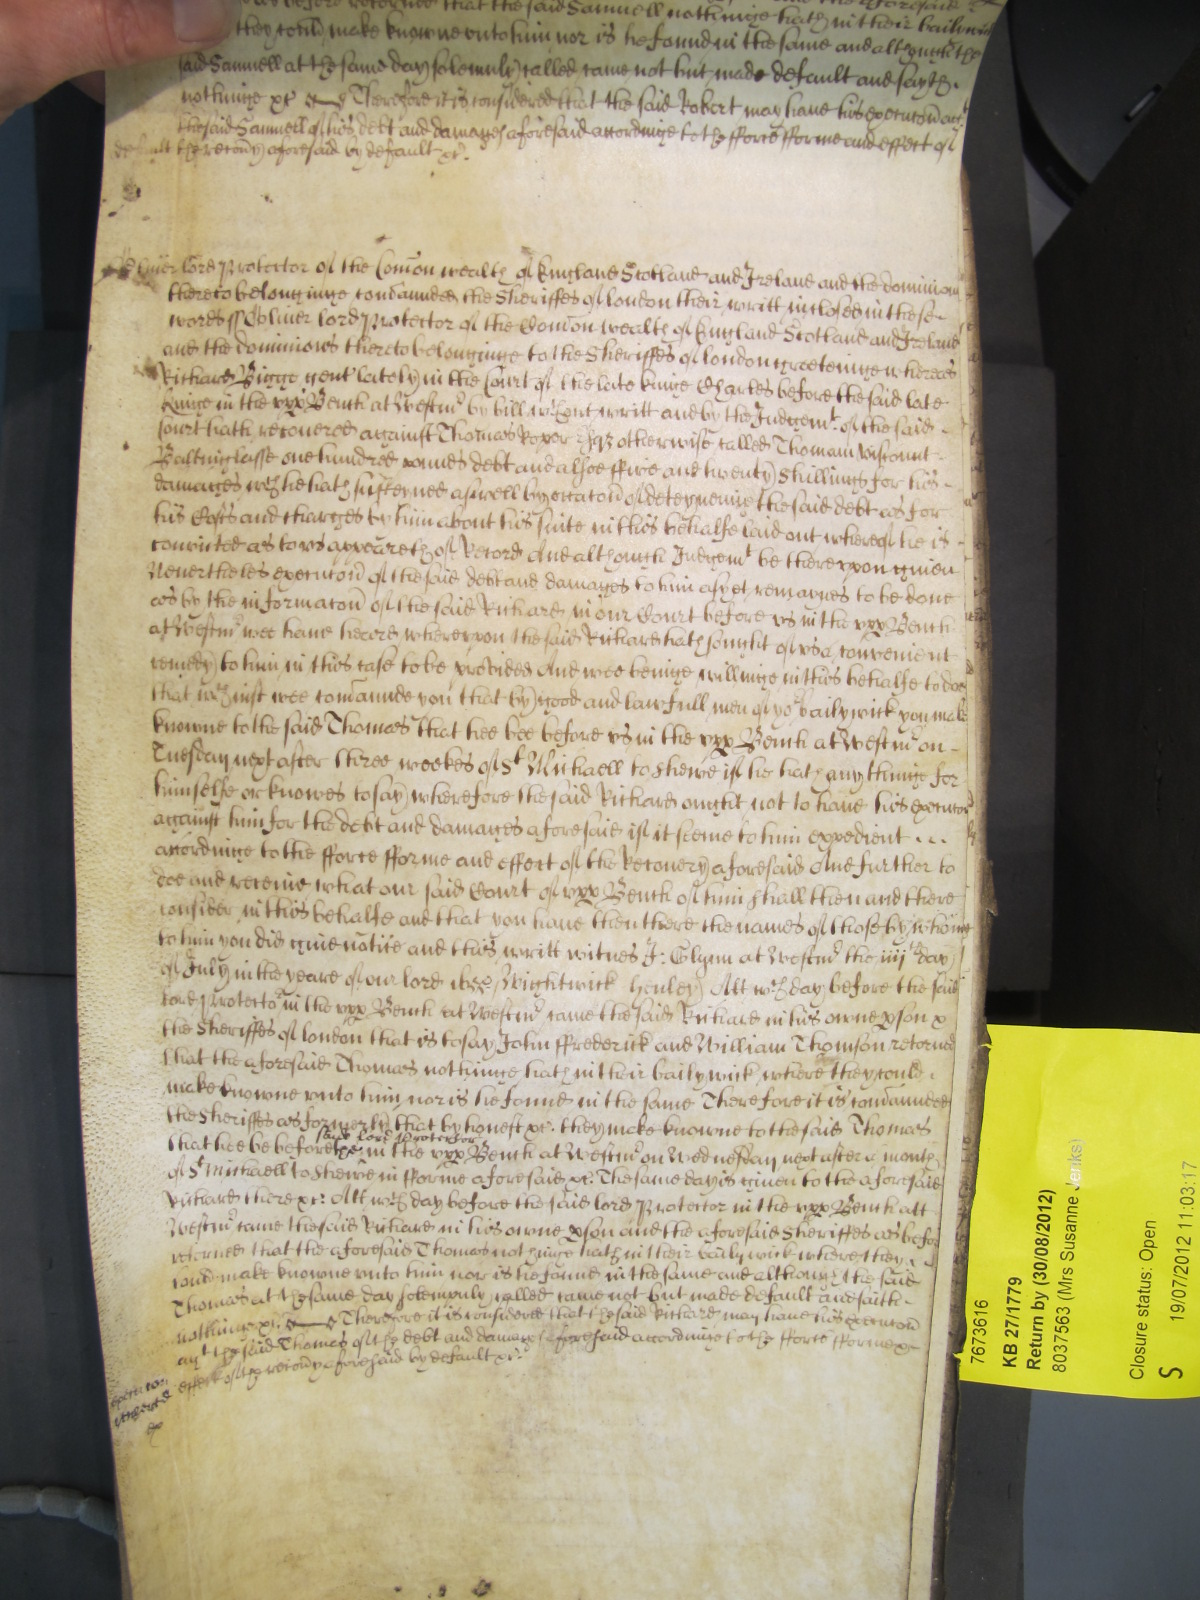 before retorned that the said Samuell nothinge hath in their bailywick
they could make knowne unto him nor is he found in the same and although the
said Samuell at the same day solemnly called came not but made default and sayth
nothinge &c Therefore it is considered that the said Robert may have his execucon ag.t
the said Samuell of his debt and damages aforesaid accordinge to the fforce fforme and effect of
the recovy aforesaid by default &c.
Oliver lord Protector of the Comon wealth of England Scotland and Ireland and the dominions
thereto belonginge comaunded the Sheriffes of london their writt inclosed in these
words ss Oliver lord Protector of the Comon wealth of England Scotland and Ireland
and the dominions thereto belonginge to the Sheriffes of london greetinge whereas
Richard Bigge gent lately in the Court of the late kinge Charles before the said late
kinge in the upp Bench at Westm.r by bill w.thout writt and by the Judgem.t of the said
Court hath recovered against Thomas Roper Esqr otherwise called Thomam Viscount
Baltinglasse one hundred pounds debt and alsoe ffive and twenty shillings for his
damages w.ch he hath susteyned aswell by occacon of deteyneinge the said debt as for
his Costs and charges by him about his suite in this behalfe laid out whereof he is
convicted as to us appeareth of Record And although Judgem.t be thereupon given
Neverthelesse execucon of the said debt and damages to him as yet remaynes to be done
as by the informacon of the said Richard in our Court before us in the upp Bench
at Westm.r wee have heard whereupon the said Richard hath sought of us a convenient
remedy to him in this case to be provided And wee beinge willinge in this behalfe to doe
that w.ch is just wee comaunde you that by good and lawfull men of yo.r bailywick you make
knowne to the said Thomas that hee bee before us in the upp Bench at Westm.r on
Tuesday next after three weekes of S.t Michaell to shewe if he hath any thinge for
himselfe or knowes to say wherefore the said Richard ought not to have his execucon
against him for the debt and damages aforesaid if it seeme to him expedient ...
accordinge to the fforce fforme and effect of the Recovery aforesaid And further to
doe and receive what our said Court of upp Bench of him shall then and there
consider in this behalfe and that you have then there the names of those by whome
to him you did give notice and this writt witnes J: Glynn at Westm.r the iiij.th day
of July in the yeare of our lord Wightwick Henley At w.ch day before the said
lord Protector in the upp Bench at Westm.r came the said Richard in his owne pson &
the Sheriffes of london that is to say John ffrederick and William Thomson retorned
that the aforesaid Thomas nothinge hath in their bailywick where they could
make knowne unto him nor is he found in the same Therefore it is comaunded
the Sheriffes as formerly that by honest &c. they make knowne to the said Thomas
said lord Protector
that hee be before the in the upp Bench at Westm.r on Wednesday next after a month
of S.t Michaell to shewe in fforme aforesaid &c. The same day is given to the aforesaid
Richard there &c. Att w.ch day before the said lord Protector in the upp Bench att
Westm.r came the said Richard in his owne pson and the aforesaid Sheriffes as before
retorned that the aforesaid Thomas nothinge hath in their bailywick where they
could make knowne unto him nor is he found in the same and although the said
Thomas at the same day solempnly called came not but made default and saith
nothinge &c. Therefore it is considered that the said Richard may have his execucon
ag.t the said Thomas of the debt and damages aforesaid accordinge to the fforce fforme &
effect of the recovy aforesaid by default &c.
7673616
KB 27/1779
Return by (30/08/2012)
8037563 (Mrs Susanne Jenks)
Closure status: Open
S 19/07/2012 11:03:17